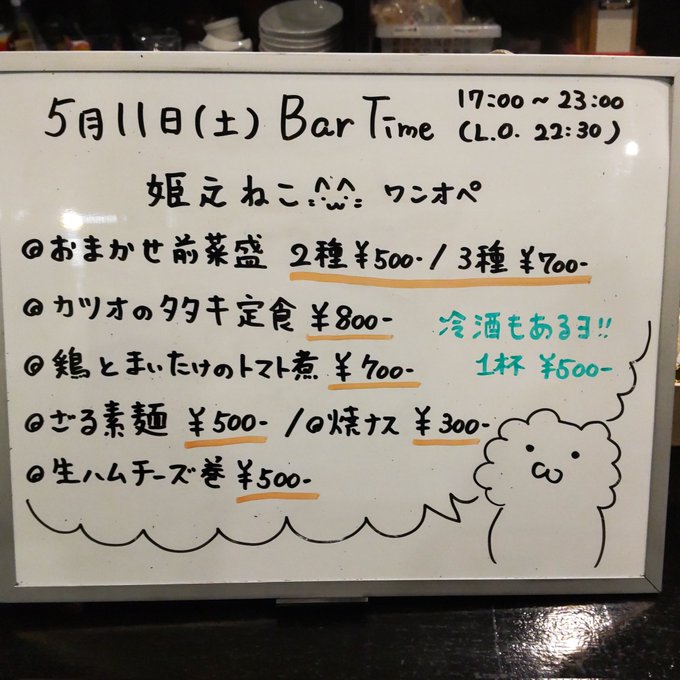 5月11日(土) Bar Time 17:00～23:00
(L.O. 22:30)
姫えねこ ワンオペ
◎おまかせ前菜盛 2種¥500-/3種¥700-
◎カツオのタタキ定食 ¥800-
冷酒もあるヨ!!
1杯 ¥500-
◎鶏とまいたけのトマト煮 ¥700-
◎ざる素麺 ¥500- /◎焼ナス ¥300-
◎生ハムチーズ巻 ¥500-